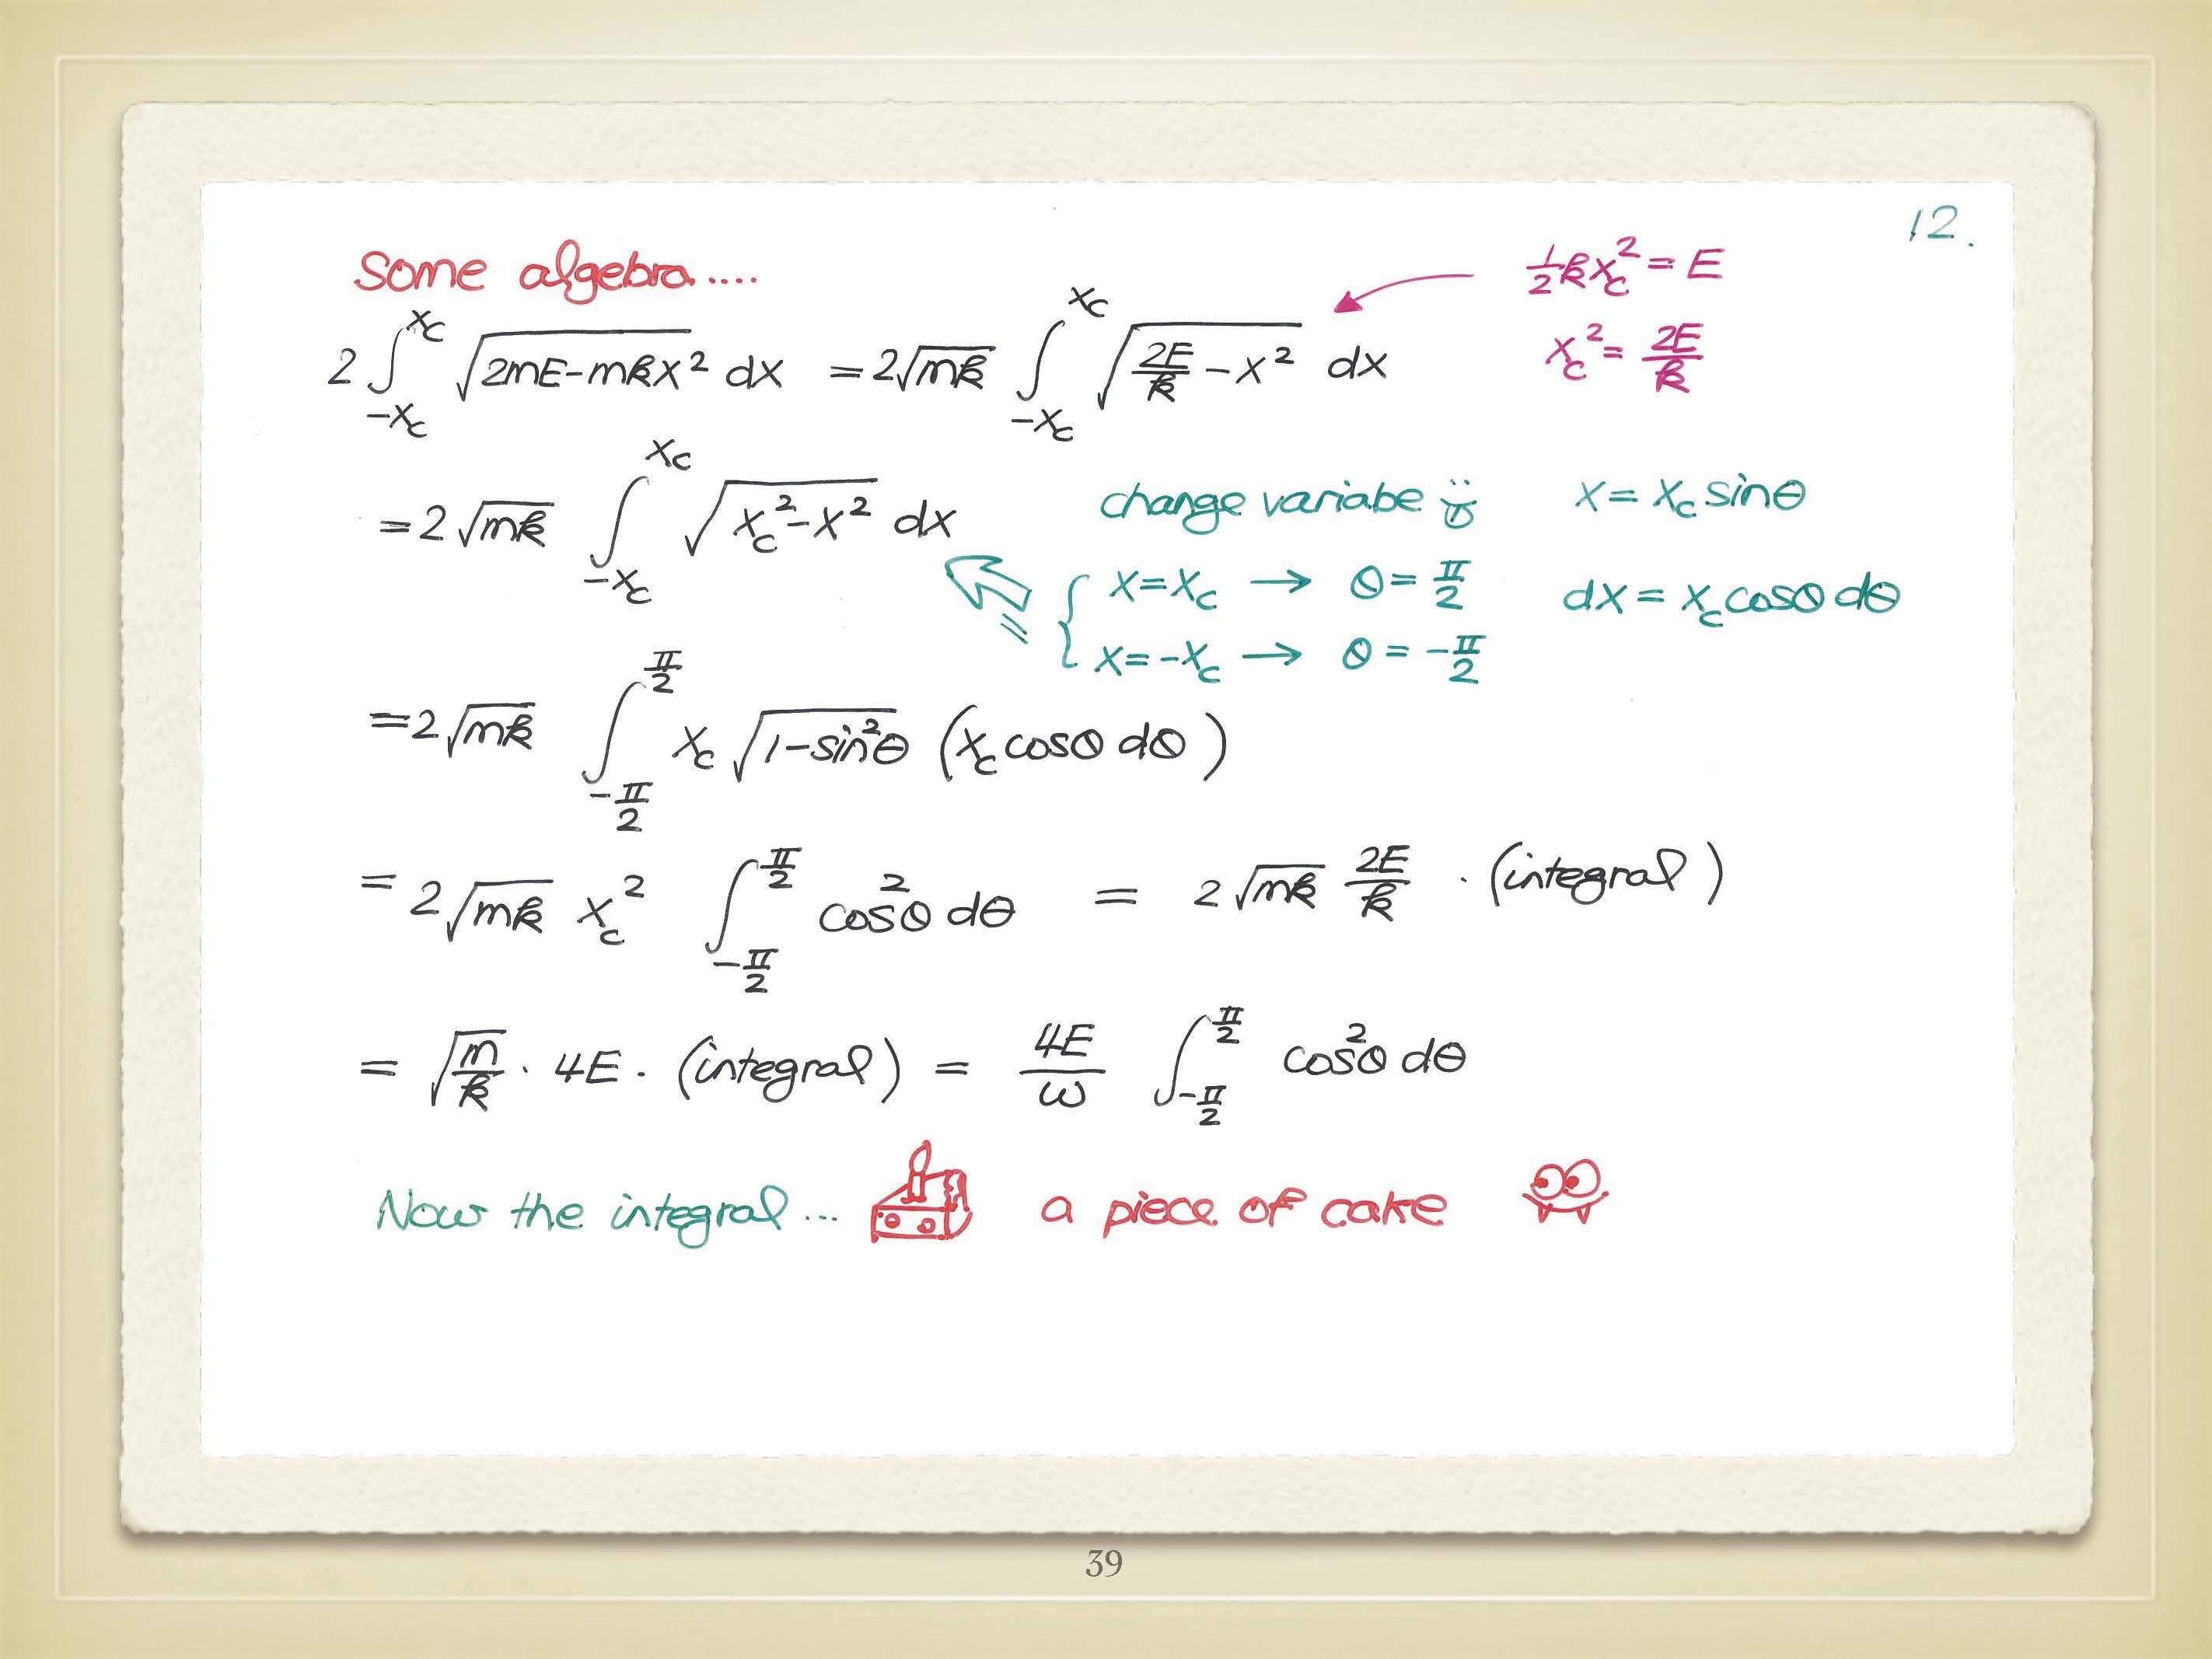 12.
Some algebra....
2 ∫_{-x_c}^{x_c} √(2mE-mkx²) dx = 2√(mk) ∫_{-x_c}^{x_c} √(2E/k - x²) dx
½kx_c² = E
x_c² = 2E/k
= 2√(mk) ∫_{-x_c}^{x_c} √(x_c²-x²) dx
change variabe x = x_c sinθ
x=x_c → θ= π/2 dx = x_c cosθ dθ
x=-x_c → θ = -π/2
= 2√(mk) ∫_{-π/2}^{π/2} x_c √(1-sin²θ) (x_c cosθ dθ)
= 2√(mk) x_c² ∫_{-π/2}^{π/2} cos²θ dθ = 2√(mk) 2E/k · (integral)
= √(m/k) · 4E · (integral) = 4E/ω ∫_{-π/2}^{π/2} cos²θ dθ
Now the integral... a piece of cake
39